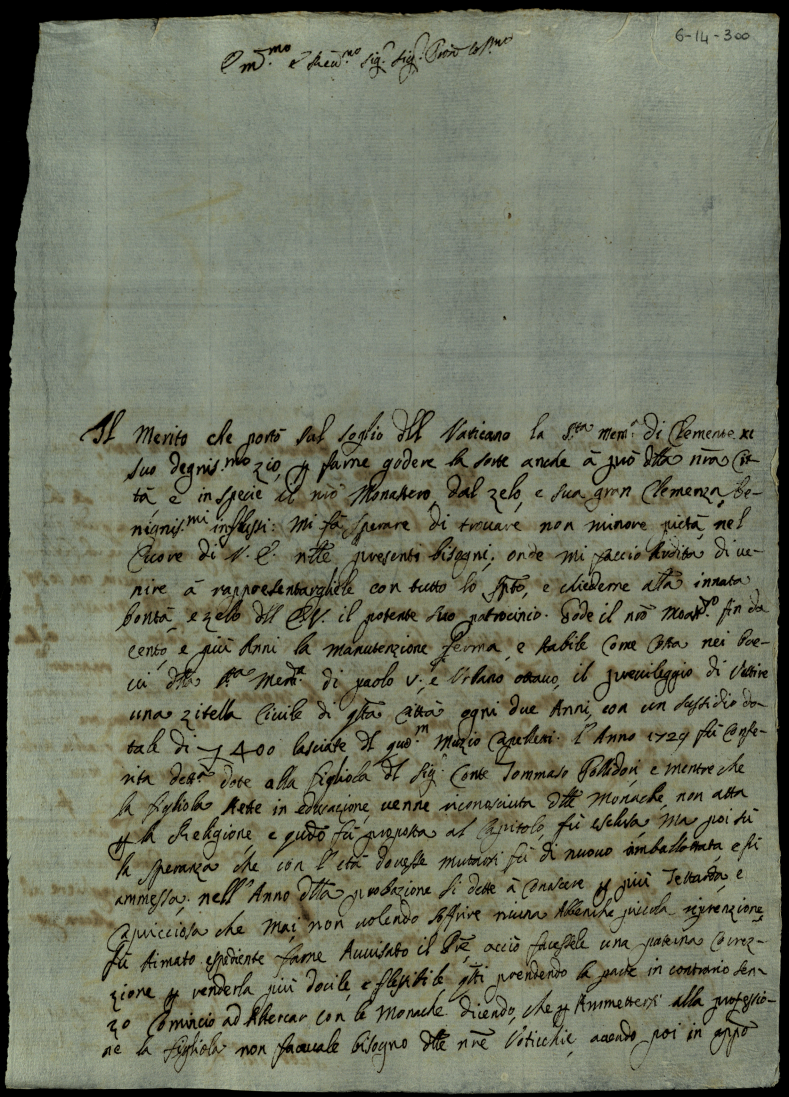 6-14-300
Em.mo e Reu.mo Sig.r Sig.r
Il Merito che portò sul soglio dell Vaticano la S.ta mem.a di Clemente XI
suo degnis.mo zio, p farne godere la sorte anche à più dlla nrã Cit-
tà e in specie il nrõ Monastero, dal zelo, e sua gran Clemenza be-
nignis.mi influssi: mi fà sperare di trouare non minore pietà nel
Cuore di V. E. nlle presenti bisogni; onde mi faccio Ardita di ve-
nire à rappresentargliele con tutto lo spto, e chiederne alla innata
bontà, e zelo dll EV. il potente suo patrocinio. Gode il nrõ Monast.o fin da
cento, e più Anni la manutenzione ferma, e stabile come costa nei Bre-
ui dlla s.ta Mem.a di paolo V. e Vrbano ottauo, il preuileggio di Vestire
una zitella Ciuile di qsta Città ogni due Anni, con un sussidio do-
tale di 400 lasciate dl quõ.m Muzio Capelletti. l'Anno 1729 fù Confe-
rita detta dote alla figliola dl Sig.r Conte Tommaso Pollidori e mentre che
la figliola stette in educazione, uenne riconosciuta dlle Monache, non atta
p la Religione, e qudo fù proposta al Capitolo, fù esclusa, Ma poi sù
la speranza che con l'età douesse mutarsi fù di nuouo imballottata, e fù
ammessa; nell'Anno dlla probazione si dette à Conoscere p più Testarda, e
Capricciosa che Mai, non uolendo soffrire niuna Abenche piccola reprenzione,
fù stimato espediente farne Auuisato il Pre, acciò facessele una paterna Correz-
zione p renderla più docile, e flessibile qsti prendendo la parte in contrario sen-
zo Comincio ad Altercar con le Monache dicendo, che p Ammettersi alla professio-
ne la figliola non faceuale bisogno dlle nre Voticchie, auendo poi in appo